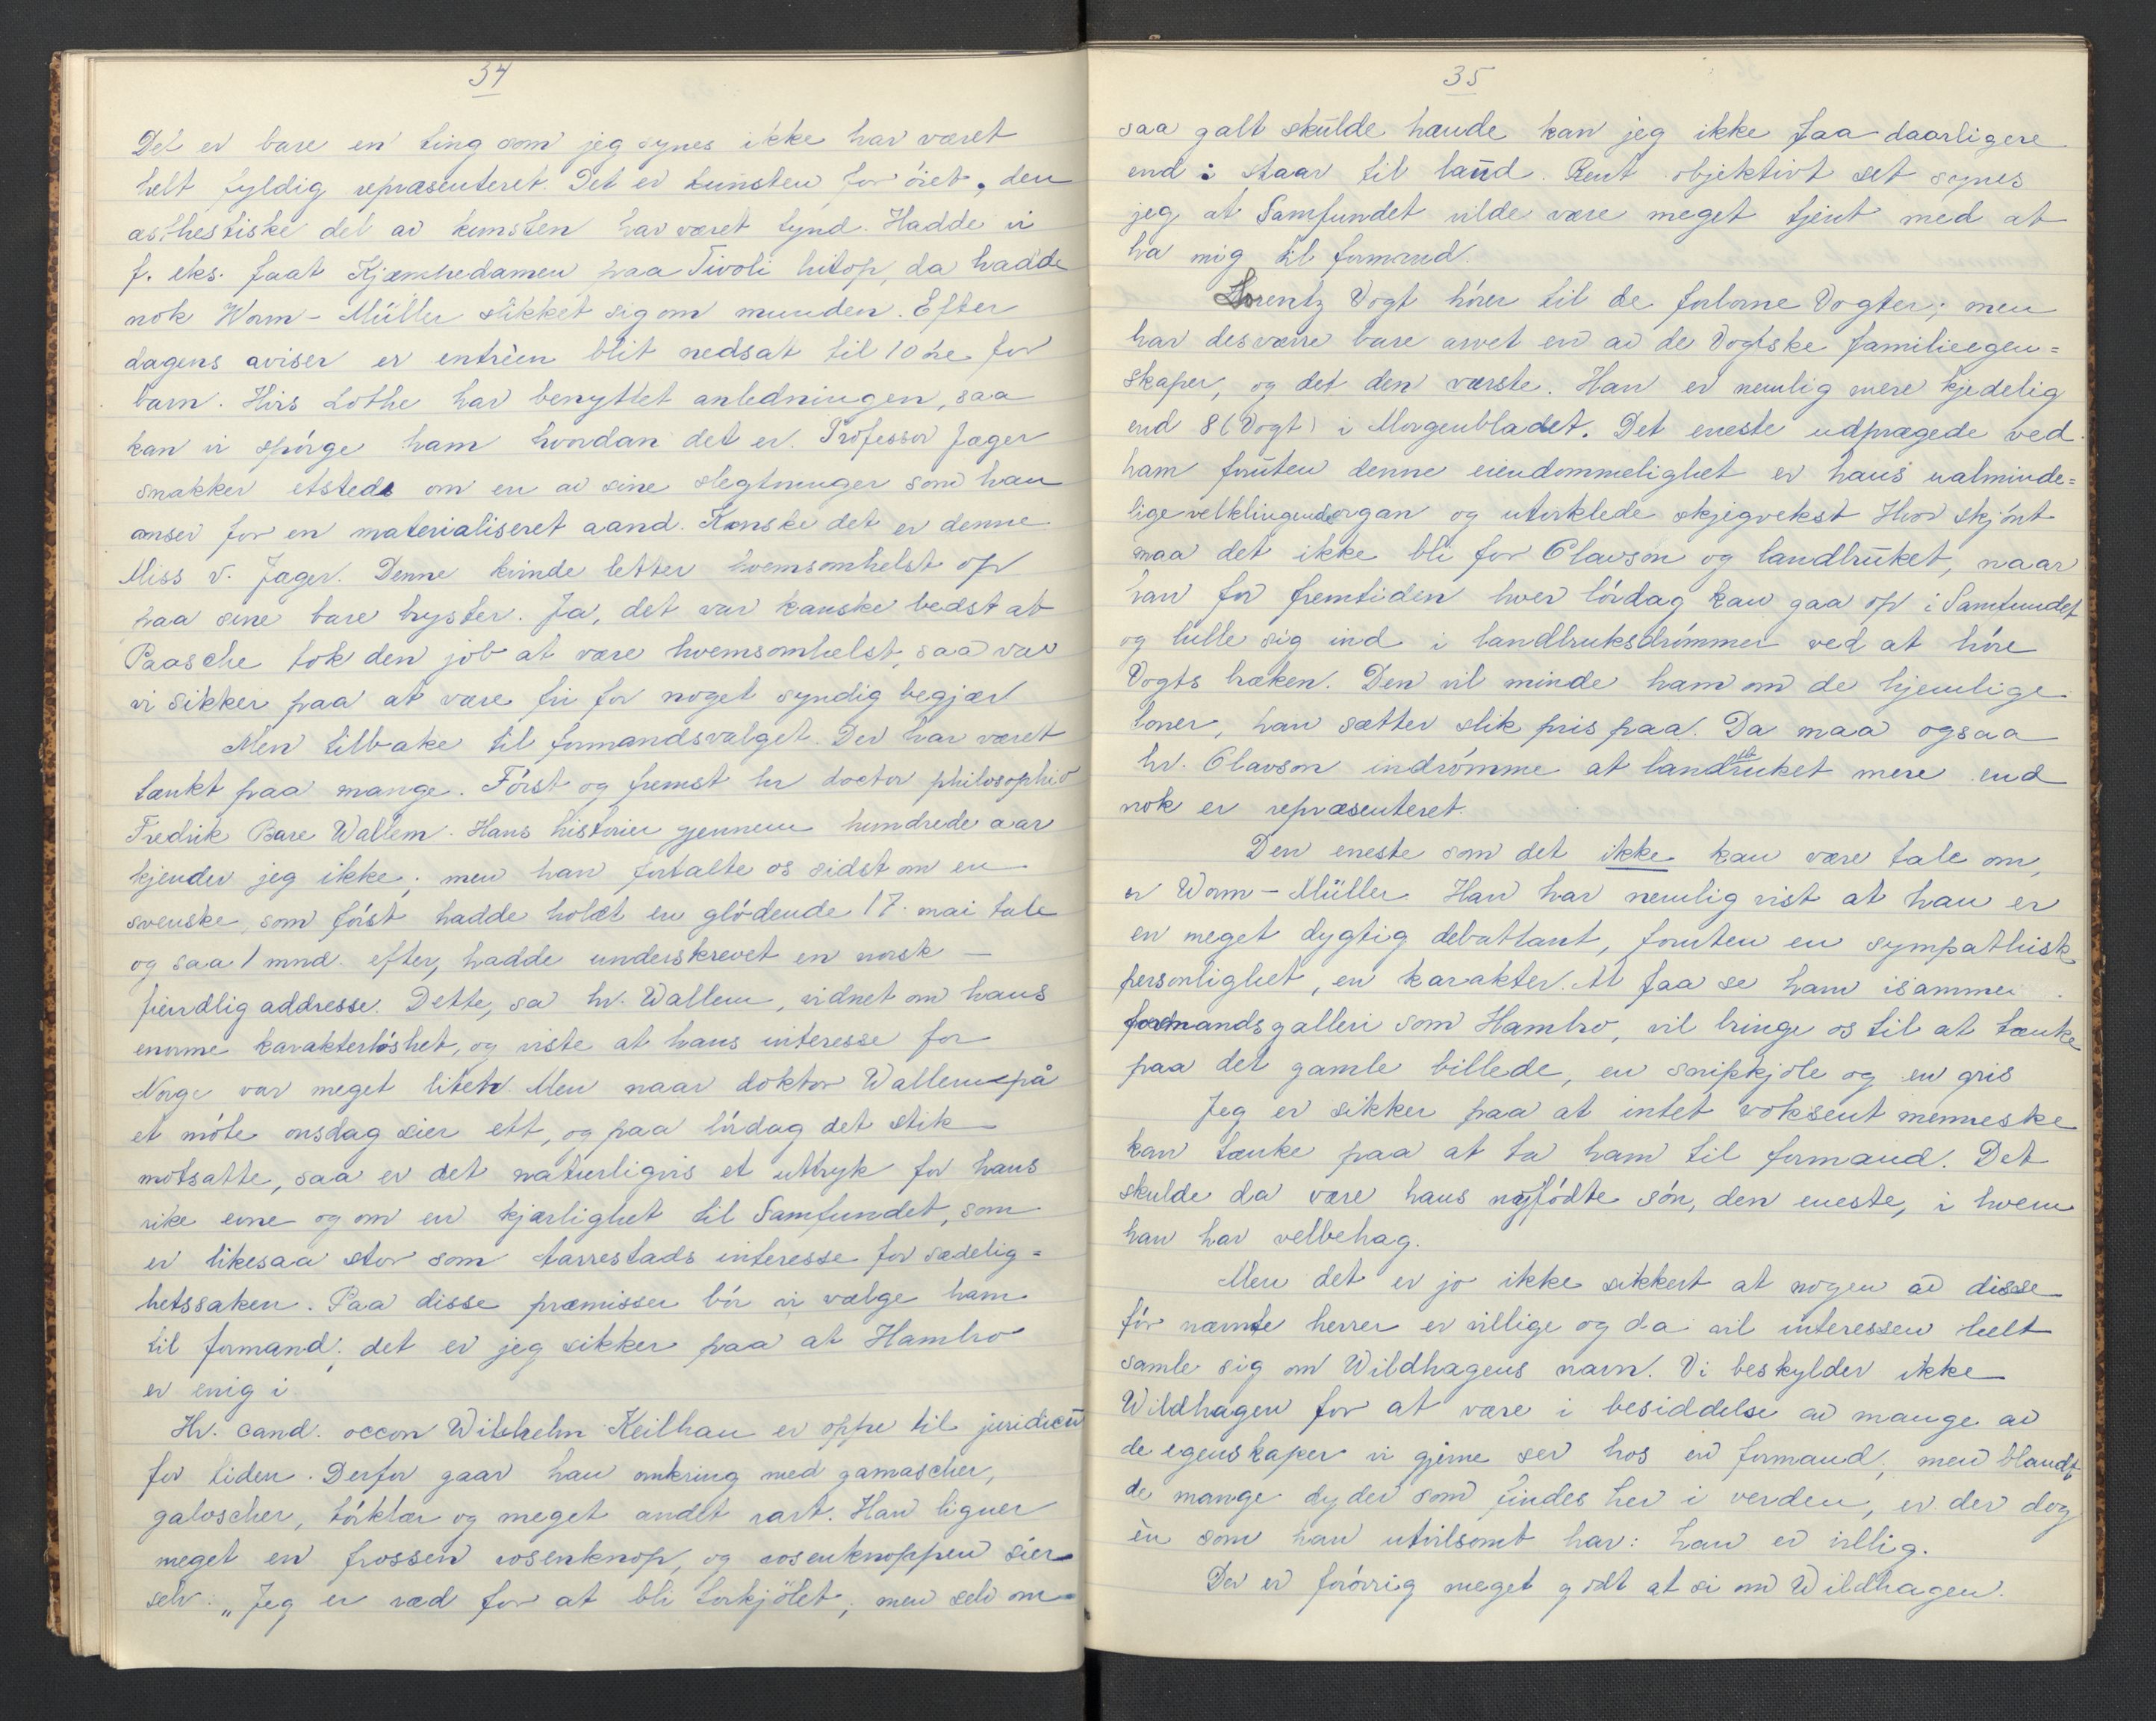 34
Det er bare en ting som jeg synes ikke har været
helt fyldig repræsenteret. Det er kunsten for öiet, den
æsthestiske del av kunsten har været tynd. Hadde vi
f. eks. faat Kjæmpedamen paa Tivoli hitop, da hadde
nok Worm-Müller slikket sig om munden. Efter
dagens aviser er entrèen blit nedsat til 10 öre for
barn. Hvis Lothe har benyttet anledningen, saa
kan vi spörge ham hvordan det er. Professor Jæger
snakker etsteds om en av sine slegtninger som han
anser for en materialiseret aand. Kanske det er denne
Miss v. Jager. Denne kvinde letter hvemsomhelst op
paa sine bare bryster. Ja, det var kanske bedst at
Paasche tok den job at være hvemsomhelst, saa var
vi sikker paa at være fri for noget syndig begjær
Men tilbake til formandsvalget. Der har været
tænkt paa mange. Först og fremst hr doctor philosophiæ
Fredrik Bare Wallem. Hans historier gjennem hundrede aar
kjender jeg ikke; men han fortalte os sidst om en
svenske, som först hadde holdt en glödende 17. mai tale
og saa 1 mnd. efter, hadde underskrevet en norsk-
fiendlig addresse. Dette, sa hr. Wallem, vidnet om hans
enorme karakterlöshet, og viste at hans interesse for
Norge var meget liten. Men naar doktor Wallem på
et möte onsdag sier ett, og paa lördag det stik
motsatte, saa er det naturligvis et uttryk for hans
rike evne og om en kjærlighet til Samfundet, som
er likesaa stor som tarrestads interesse for sædelig=
hetssaken. Paa disse præmisser bör vi vælge ham
til formand; det er jeg sikker paa at Hambro
er enig i
Hr. cand. occon Wilhelm Keilhau er oppe til juridicum
for tiden. Derfor gaar han omkring med gamascher,
galoscher, törklær og meget andet rart. Han ligner
meget en frossen rosenknop, og rosenknoppen sier
selv: „Jeg er ræd for at bli forkjölet; men selv om
35
saa galt skulde hænde kan jeg ikke faa daarligere
end: staar til laud. Rent objektivt set synes
jeg at Samfundet vilde være meget tjent med at
ha mig til formand.
Lorentz Vogt hörer til de forlorne Vogter; men
har desværre bare arvet en av de Vogtske familieegen=
skaper, og det den værste. Han er nemlig mere kjedelig
end 8 (Vogt) i Morgenbladet. Det eneste udprægede ved
ham foruten denne eiendommelighet er hans ualminde=
lige velklingende organ og utviklede skjegvekst Hvor skjönt
maa det ikke bli for Olavson og landbruket, naar
han for fremtiden hver lördag kan gaa op i Samfundet
og lulle sig ind i landbruksdrömmer ved at höre
Vogts bræken. Den vil minde ham om de hjemlige
toner, han sætter slik pris paa. Da maa ogsaa
hr. Olavson indrömme at landbruket mere end
nok er repræsenteret.
Den eneste som det ikke kan være tale om,
er Worm-Müller. Han har nemlig vist at han er
en meget dygtig debattant, foruten en sympathisk
personlighet, en karakter. At faa se ham isamme
formandsgalleri som Hambro, vil bringe os til at tænke
paa det gamle billede, en snipkjole og en gris
Jeg er sikker paa at intet voksent menneske
kan tænke paa at ta ham til formand. Det
skulde da være hans nyfödte sön, den eneste, i hvem
han har velbehag.
Men det er jo ikke sikkert at nogen av disse
för nævnte herrer er villige og da vil interessen helt
samle sig om Wildhagens navn. Vi beskylder ikke
Wildhagen for at være i besiddelse av mange av
de egenskaper vi gjerne ser hos en formand; men blandt
de mange dyder som findes her i verden, er der dog
èn som han utvilsomt har: han er villig.
Der er forövrig meget godt at si om Wildhagen.